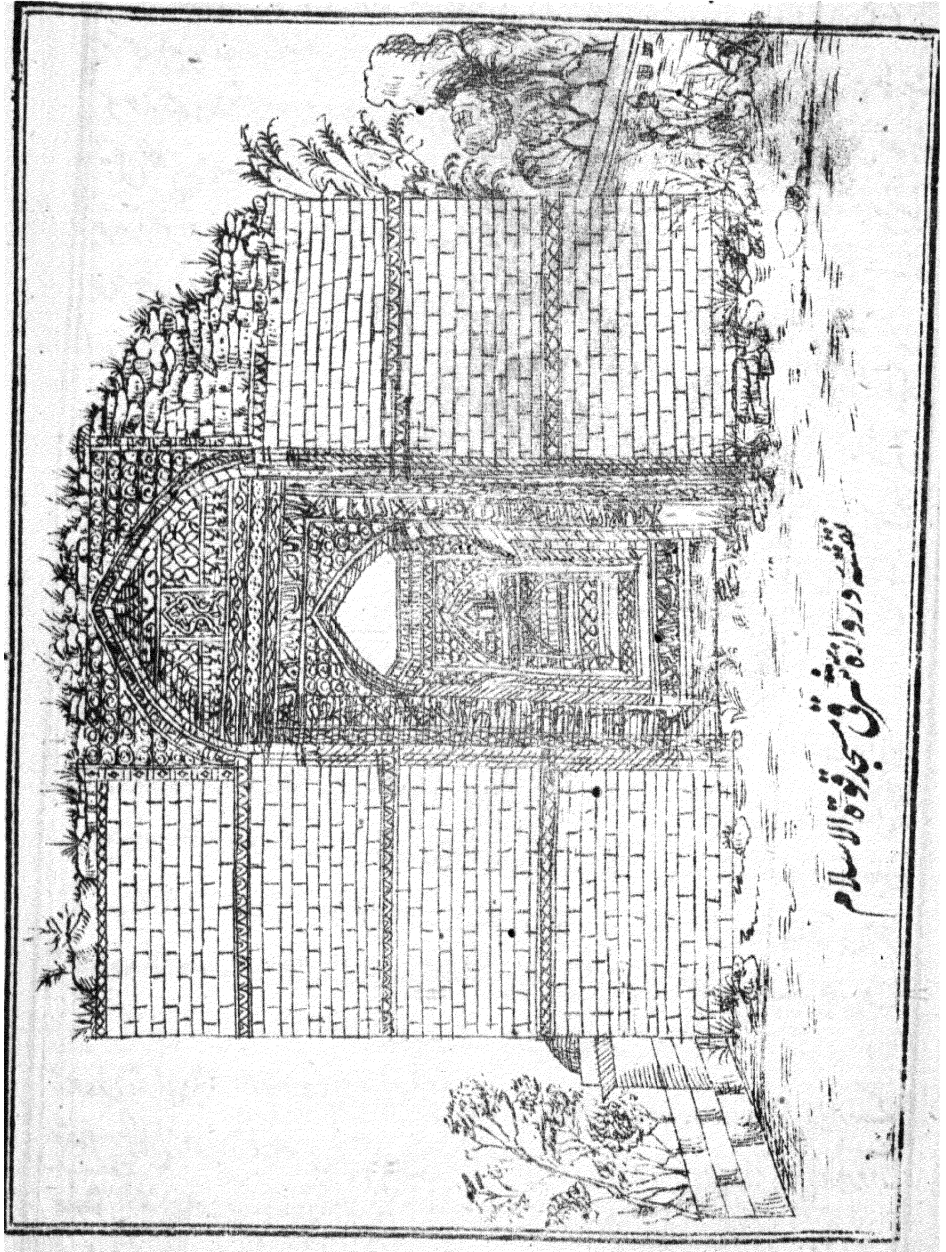 نقشہ دروازہ شرقی مسجد قوۃ الاسلام